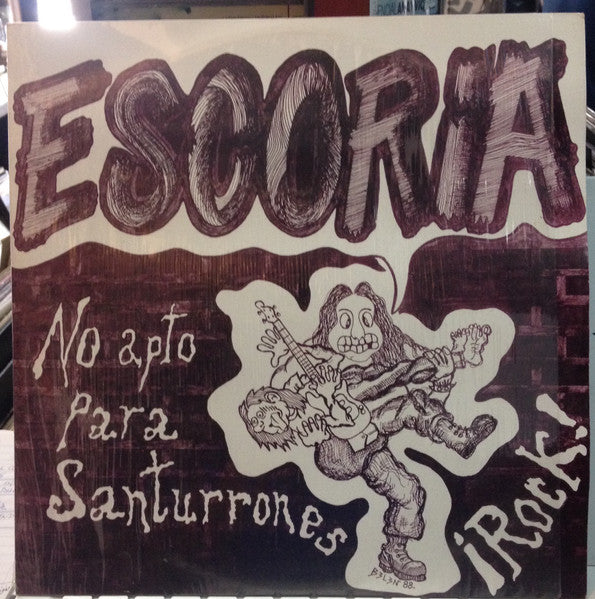 ESCORIA
No apto
para
Santurrones
¡Rock!
BELEN 88.